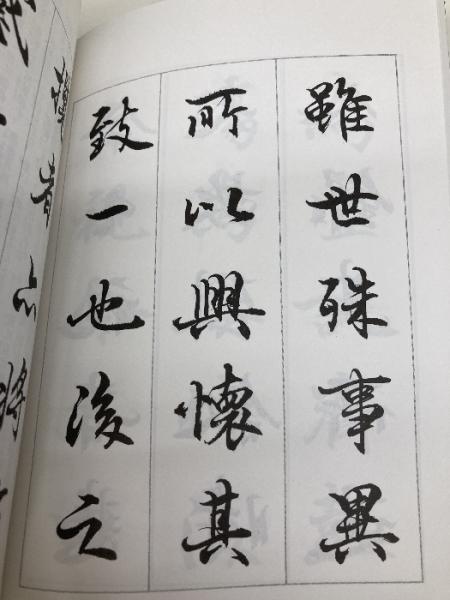 雖世殊事異
所以興懷其
致一也後之
攬者亦將